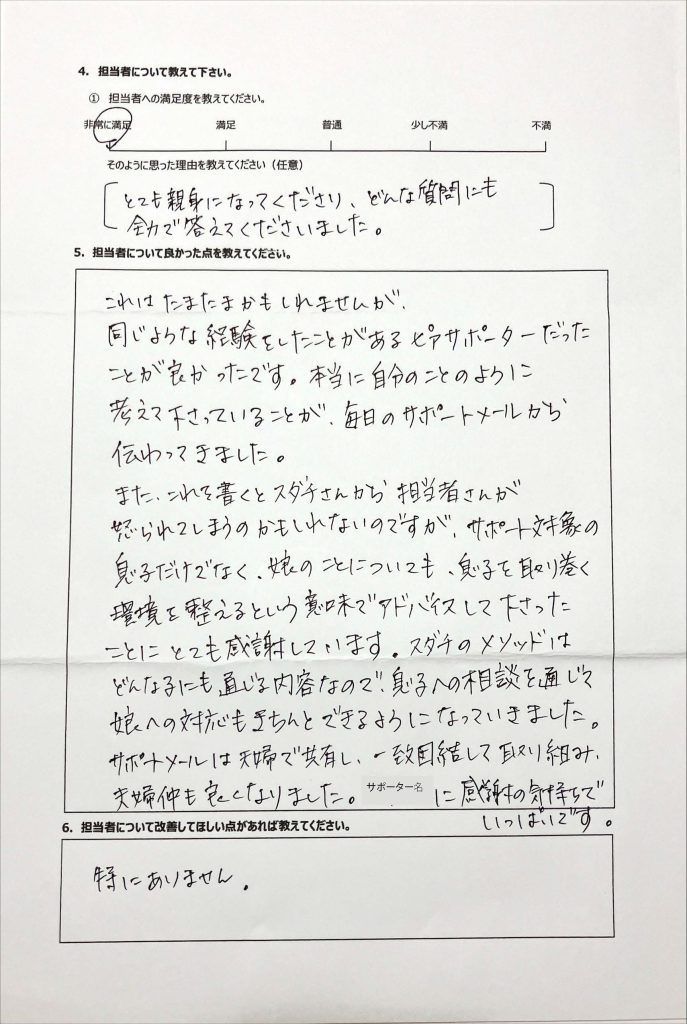 4. 担当者について教えて下さい。
① 担当者への満足度を教えてください。
非常に満足 満足 普通 少し不満 不満
そのように思った理由を教えてください（任意）
とても親身になってくださり、どんな質問にも
全力で答えてくださいました。
5. 担当者について良かった点を教えてください。
これはたまたまかもしれませんが、
同じような経験をしたことがあるピアサポーターだった
ことが良かったです。本当に自分のことのように
考えて下さっていることが、毎日のサポートメールから
伝わってきました。
また、これを書くとスダチさんから担当者さんが
怒られてしまうのかもしれないのですが、サポート対象の
息子だけでなく、娘のことについても、息子を取り巻く
環境を整えるという意味でアドバイスして下さった
ことにとても感謝しています。スダチのメソッドは
どんな子にも通じる内容なので、息子への相談を通じて
娘への対応もきちんとできるようになっていきました。
サポートメールは夫婦で共有し、一致団結して取り組み、
夫婦仲も良くなりました。 サポーター名 に感謝の気持ちで
いっぱいです。
6. 担当者について改善してほしい点があれば教えてください。
特にありません。